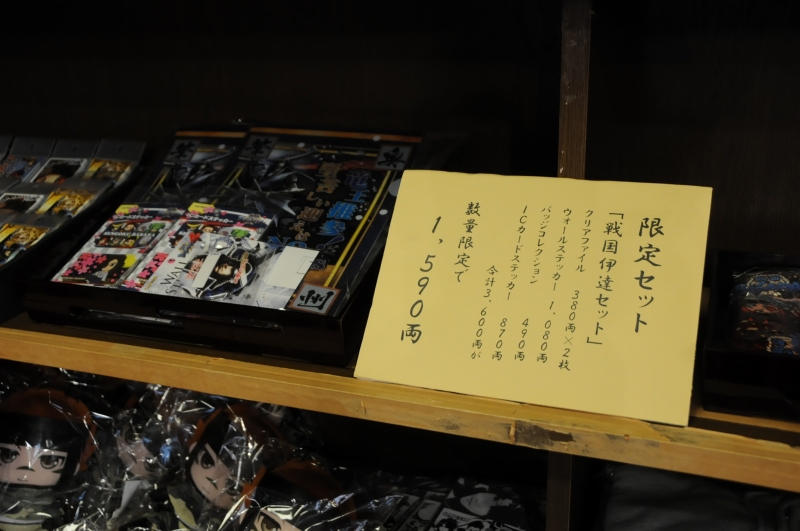 限定セット
「戦国伊達セット」
クリアファイル 380両×2枚
ウォールステッカー 1,080両
バッジコレクション 490両
ICカードステッカー 870両
合計3,600両が
数量限定で
1,590両
奥
州